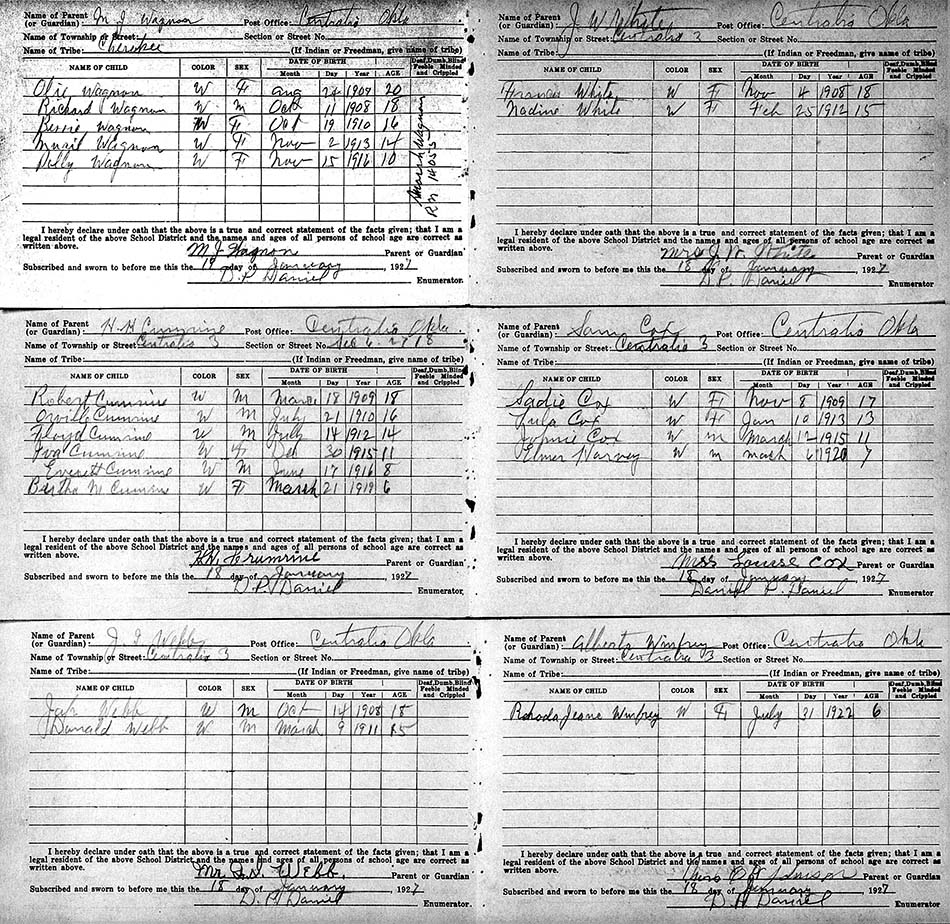 Name of Parent (or Guardian: M J Wagnon Post Office: Centralia Okla
Name of Township or Street: Section or Street No.
Name of Tribe: Cherokee (If Indian or Freedman, give name of tribe)
NAME OF CHILD COLOR SEX DATE OF BIRTH Month Day Year AGE Deaf, Dumb, Blind Feeble Minded and Crippled
Wagnon W F Aug 24 20
Richard Wagnon W M Oct 11 1908 18
Bessie Wagnon W F Oct 19 1910 16
Wagnon W F Nov 2 1913 14
Polly Wagnon W F Nov 15 1916 10
Wagnon
14055
I hereby declare under oath that the above is a true and correct statement of the facts given; that I am a
legal resident of the above School District and the names and ages of all persons of school age are correct as
written above.
M J Wagnon Parent or Guardian
Subscribed and sworn to before me this the 18 day of January 1927
D. P. Daniel Enumerator.
Name of Parent (or Guardian: J. W. White Post Office: Centralia Okla
Name of Township or Street: Centralia 3 Section or Street No.
Name of Tribe: (If Indian or Freedman, give name of tribe)
NAME OF CHILD COLOR SEX DATE OF BIRTH Month Day Year AGE Deaf, Dumb, Blind Feeble Minded and Crippled
Frances White W F Nov 4 1908 18
Nadine White W F Feb 25 1912 15
I hereby declare under oath that the above is a true and correct statement of the facts given; that I am a
legal resident of the above School District and the names and ages of all persons of school age are correct as
written above.
Mrs J. W. White Parent or Guardian
Subscribed and sworn to before me this the 18 day of January 1927
D. P. Daniel Enumerator.
Name of Parent (or Guardian: H. H Cumrine Post Office: Centralia Okla
Name of Township or Street: Centralia 3 Section or Street No. Sec 6 - 27 18
Name of Tribe: (If Indian or Freedman, give name of tribe)
NAME OF CHILD COLOR SEX DATE OF BIRTH Month Day Year AGE Deaf, Dumb, Blind Feeble Minded and Crippled
Robert Cumrine W M 18 1909 18
Orville Cumrine W M July 21 1910 16
Floyd Cumrine W M July 14 1912 14
Iva Cumrine W F 30 1915 11
Everett Cumrine W M June 17 1916 8
Bertha M Cumrine W F March 21 1919 6
I hereby declare under oath that the above is a true and correct statement of the facts given; that I am a
legal resident of the above School District and the names and ages of all persons of school age are correct as
written above.
Crumrine Parent or Guardian
Subscribed and sworn to before me this the 18 day of January 1927
D. P. Daniel Enumerator.
Name of Parent (or Guardian: Sam Cox Post Office: Centralia Okla
Name of Township or Street: Centralia 3 Section or Street No.
Name of Tribe: (If Indian or Freedman, give name of tribe)
NAME OF CHILD COLOR SEX DATE OF BIRTH Month Day Year AGE Deaf, Dumb, Blind Feeble Minded and Crippled
Sadie Cox W F Nov 8 1909 17
Lula Cox W F Jan 10 1913 13
Cox W M March 12 1915 11
Elmer Harvey W M 6 1920 7
I hereby declare under oath that the above is a true and correct statement of the facts given; that I am a
legal resident of the above School District and the names and ages of all persons of school age are correct as
written above.
Miss Louise Cox Parent or Guardian
Subscribed and sworn to before me this the 18 day of January 1927
Daniel P. Daniel Enumerator.
Name of Parent (or Guardian: Webb Post Office: Centralia Okla
Name of Township or Street: Centralia 3 Section or Street No.
Name of Tribe: (If Indian or Freedman, give name of tribe)
NAME OF CHILD COLOR SEX DATE OF BIRTH Month Day Year AGE Deaf, Dumb, Blind Feeble Minded and Crippled
Jack Webb W M Oct 14 1908 18
Donald Webb W M March 9 1911 15
I hereby declare under oath that the above is a true and correct statement of the facts given; that I am a
legal resident of the above School District and the names and ages of all persons of school age are correct as
written above.
Mr Webb. Parent or Guardian
Subscribed and sworn to before me this the 18 day of January 1927
D. P. Daniel Enumerator.
Name of Parent (or Guardian: Alberts Winfrey Post Office: Centralia Okla
Name of Township or Street: Centralia 3 Section or Street No.
Name of Tribe: (If Indian or Freedman, give name of tribe)
NAME OF CHILD COLOR SEX DATE OF BIRTH Month Day Year AGE Deaf, Dumb, Blind Feeble Minded and Crippled
Rohoda Jeane Winfrey W F July 31 1922 6
I hereby declare under oath that the above is a true and correct statement of the facts given; that I am a
legal resident of the above School District and the names and ages of all persons of school age are correct as
written above.
Parent or Guardian
Subscribed and sworn to before me this the 18 day of January 1927
Daniel Enumerator.